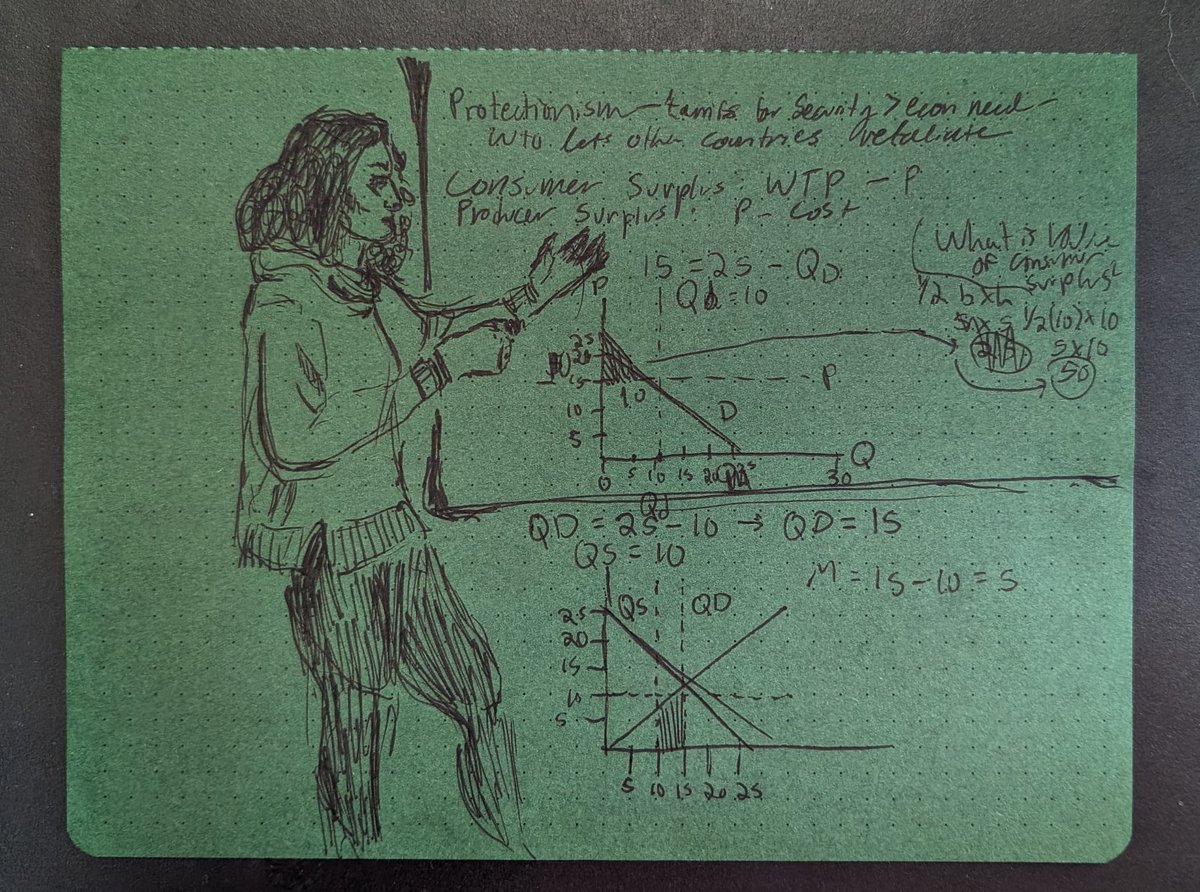 Protectionism - tariffs for Security > econ need -
WTO lets other countries retaliate
Consumer Surplus: WTP - P
Producer Surplus: P - Cost
What is value
of consumer
surplus
15 = 25 - QD
Qd = 10
1/2 b x h
5 x 5 1/2(10) x 10
5 x 10
50
P
25
20
15
10
5
10
P
D
0 5 10 15 20 25 30
Q
Qd
QD = 25 - 10 → QD = 15
QS = 10
M = 15 - 10 = 5
QS QD
25
20
15
10
5
5 10 15 20 25